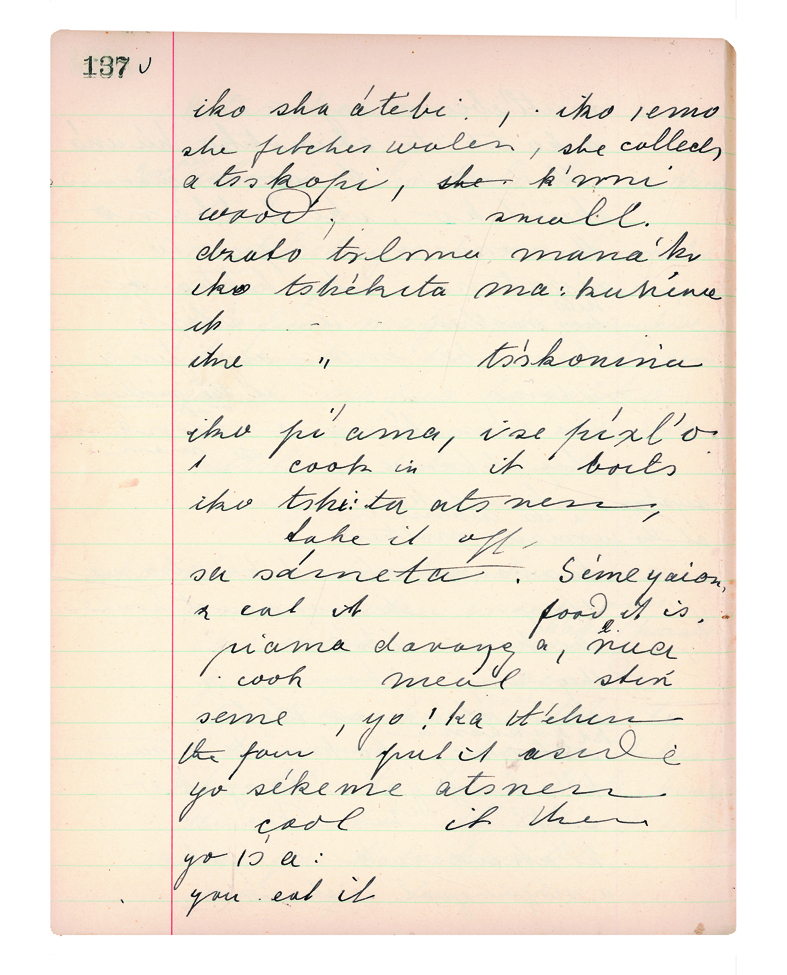 137 v
iko sha átébi . , . iko , emo
she fetches water , she collects
a tsskopi , she k'nni
wood , small .
dzato manáki
iko tshékita ma:kuhíne
it
ine " tsískonina
iko pí'ama, ise píxl'o
I cook in it boils
iko tshi:ta atsness ,
take it off
sa sásneta . Séme yaion,
& eat it food it is .
piama davong a,
cook meal stir
seme , yo ! ka
the four put it aside
yo sékeme atsness
cool it then
yo is a :
you eat it